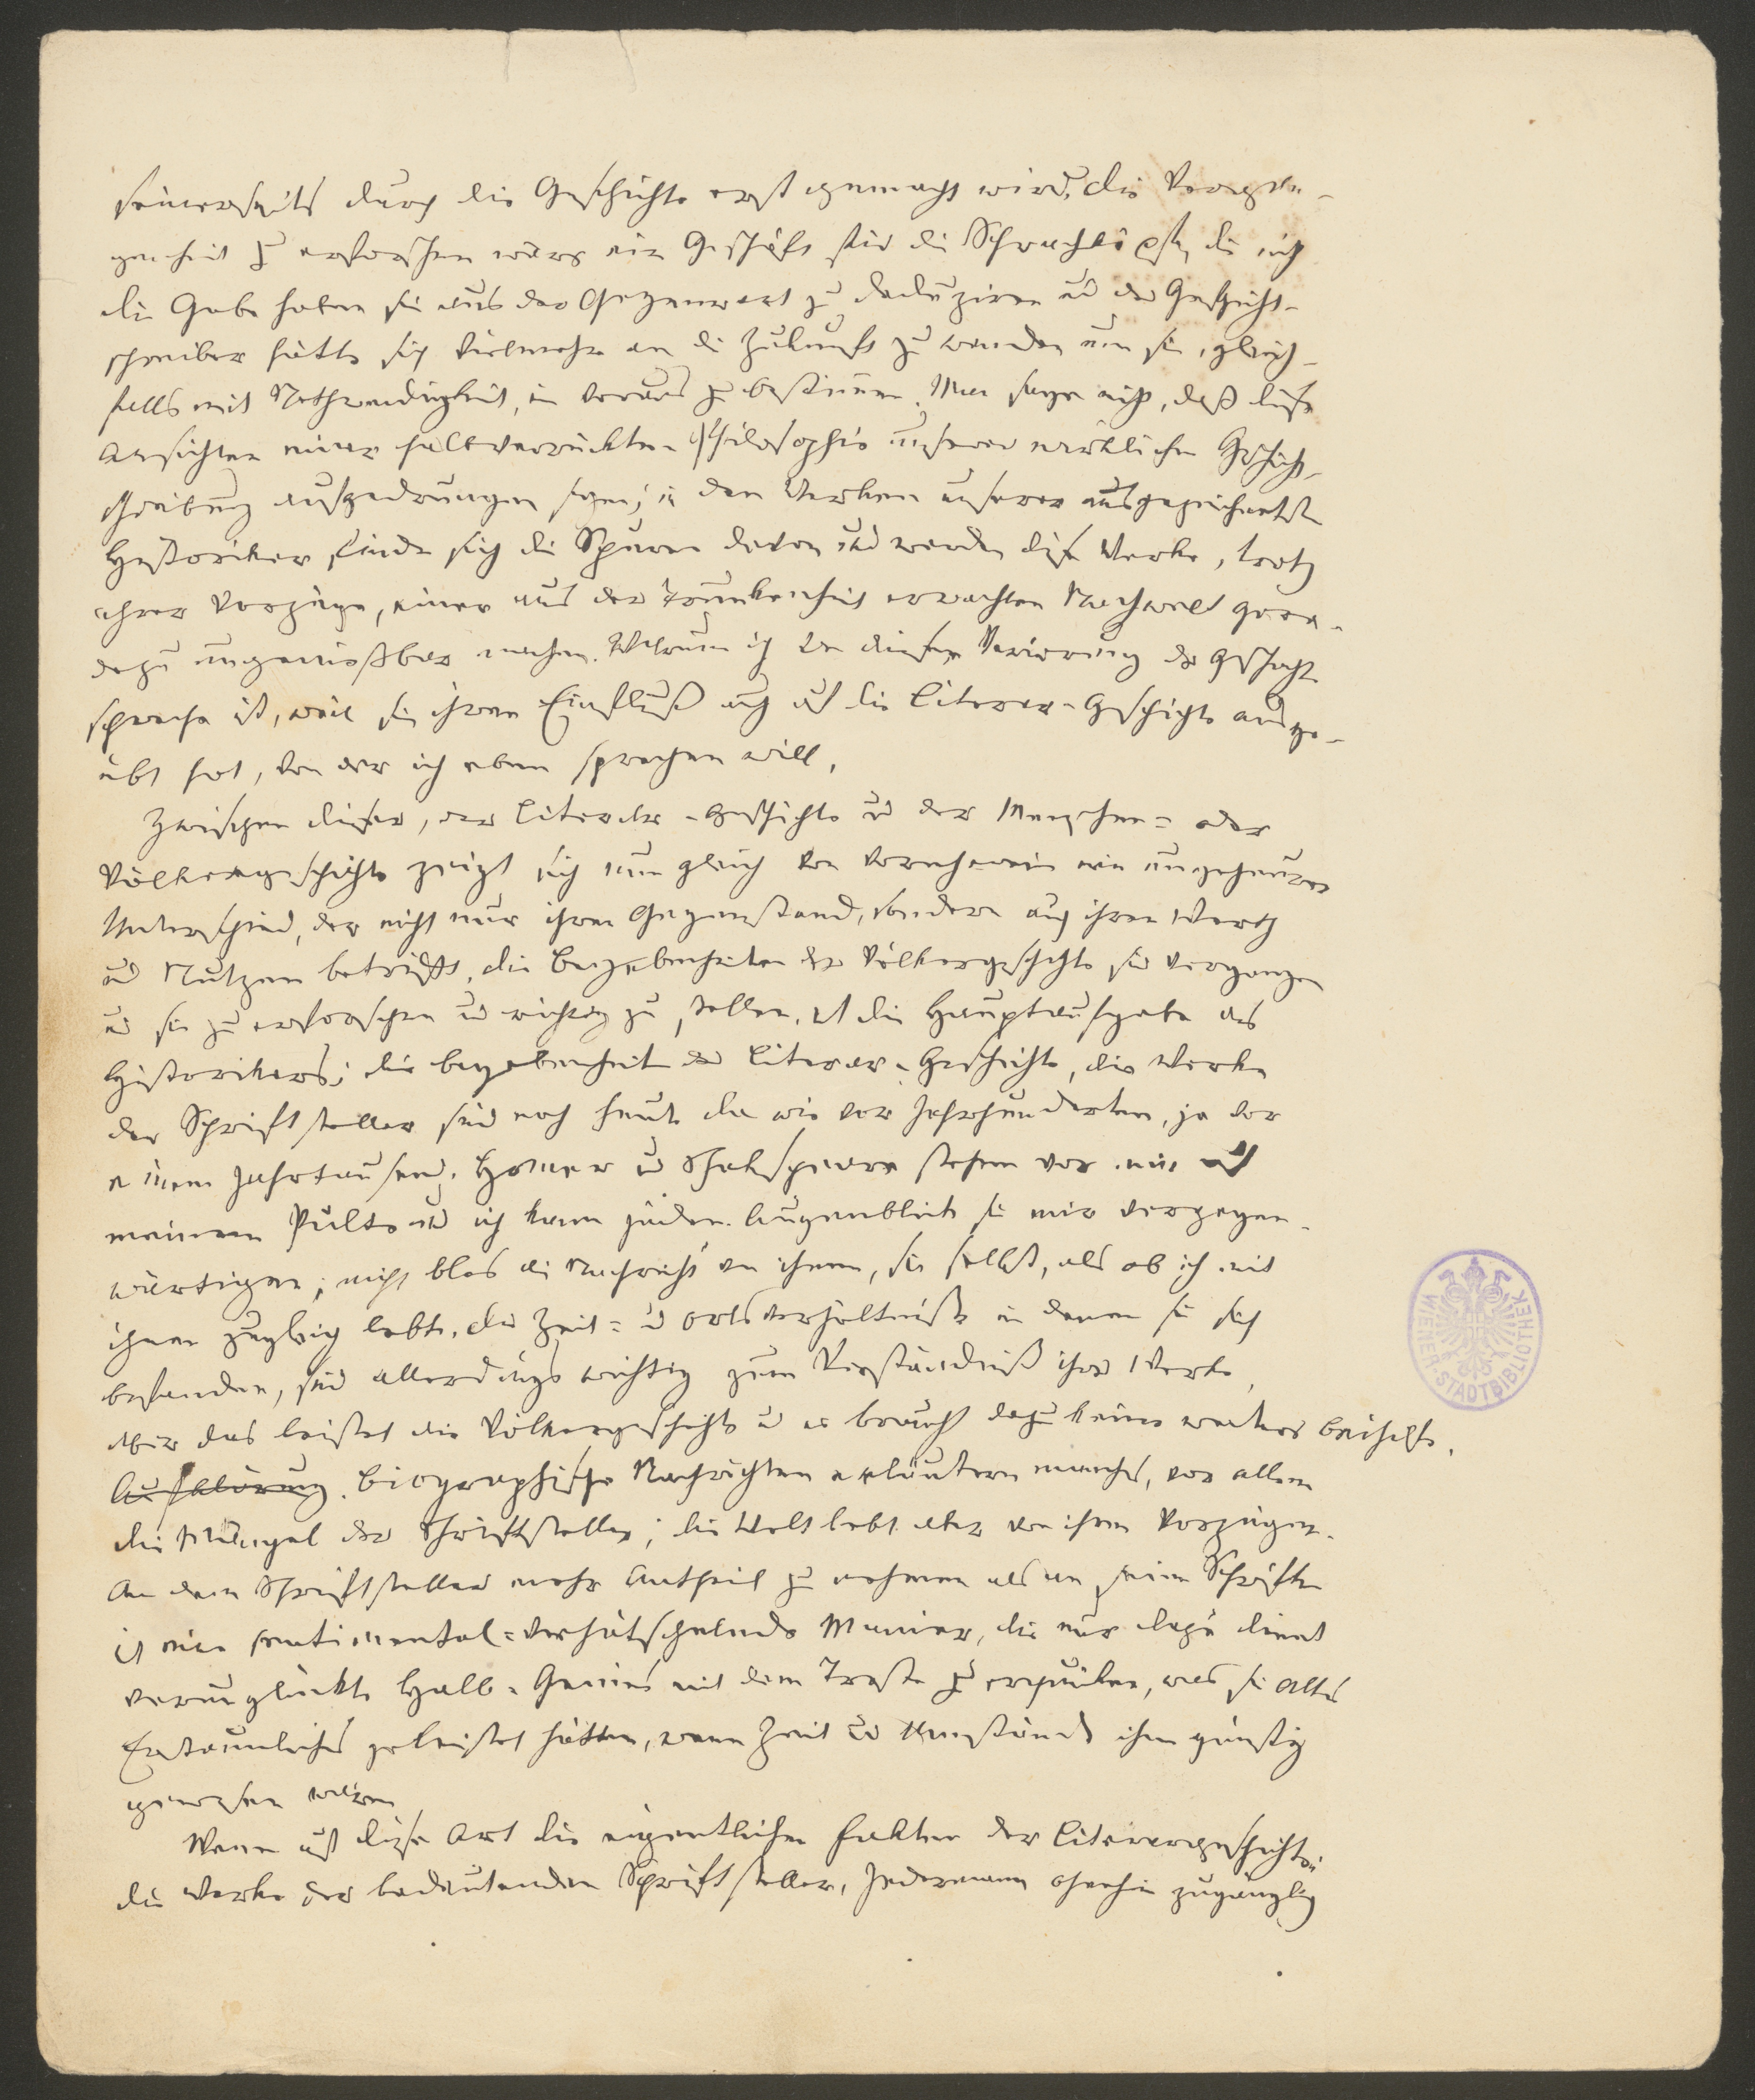 seinerseits durch die Geschichte erst gemacht wird. Die Vergan-
genheit zu erforschen wäre ein Geschäft für die Schwachköpfe, die nicht
die Gabe haben sie aus der Gegenwart zu deduziren und der Geschicht-
schreiber hätte sich vielmehr an die Zukunft zu wenden um sie, gleich-
falls mit Nothwendigkeit, im voraus zu bestimmen. Man sage nicht, daß diese
Ansichten einer halbverrückten Philosophie unserer wirklichen Geschicht-
schreibung aufgedrungen seyen; in den Werken unserer ausgezeichnetsten
Historiker finden sich die Spuren davon und werden diese Werke, trotz
ihrer Vorzüge, einer aus der Trunkenheit erwachten Nachwelt gera-
dezu ungenießbar machen. Warum ich von dieser Verirrung der Geschichte
spreche ist, weil sie ihren Einfluß auch auf die Literar-Geschichte ausge-
übt hat, von der ich eben sprechen will.
Zwischen dieser, der Literar-Geschichte und der Menschen- oder
Völkergeschichte zeigt sich nun gleich von vorneherein ein ungeheurer
Unterschied, der nicht nur ihren Gegenstand, sondern auch ihren Werth
und Nutzen betrifft. Die Begebenheiten der Völkergeschichte sind vergangen
und sie zu erforschen und richtig zu stellen, ist die Hauptaufgabe des
Historikers; die Begebenheiten der Literar-Geschichte, die Werke
der Schriftsteller sind noch heute da wie vor Jahrhunderten, ja vor
einem Jahrtausend. Homer und Shakspeare stehen vor mir auf
meinem Pulte und ich kann jeden Augenblick sie mir vergegen-
wärtigen; nicht blos die Nachricht von ihnen, sie selbst, als ob ich mit
ihnen zugleich lebte. Die Zeit- und Ortsverhältnisse in denen sie sich
befanden, sind allerdings wichtig zum Verständniß ihrer Werke,
aber das leistet die Völkergeschichte und es braucht dazu keine weitere Beihilfe.
Aufklärung. Biographische Nachrichten erläutern manches, vor allem
die Mängel der Schriftsteller; die Welt lebt aber von ihren Vorzügen.
An dem Schriftsteller mehr Antheil zu nehmen als an seinen Schriften
ist eine sentimental-verhätschelnde Manier, die nur dazu dient
verunglückte Halb-Genies mit dem Troste zu erquicken, was sie alles
Erstaunliches geleistet hätten, wenn Zeit und Umstände ihnen günstig
gewesen wären
Wenn auf diese Art die eigentlichen Fakten der Literargeschichte:
die Werke der bedeutenden Schriftsteller, Jedermann ohnehin zugänglich
WIENER-STADTBIBLIOTHEK